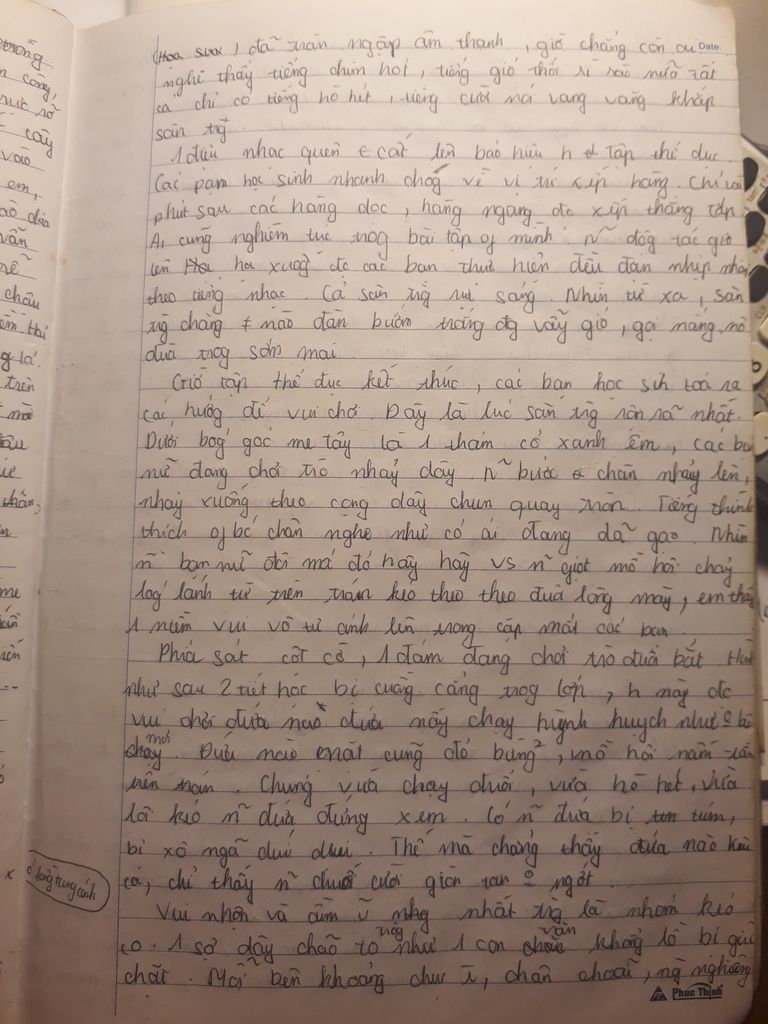 (Hoa sữa) đã tràn ngập âm thanh, giờ chẳng còn ai Date
nghe thấy tiếng chim hót, tiếng gió thổi rì rào nữa tất
cả chỉ có tiếng hò hét, tiếng cười nói vang vang khắp
sân trg
1 điệu nhạc quen cất lên báo hiệu h tập thể dục.
Các bạn học sinh nhanh chóg về vị trí xếp hàng. Chỉ vài
phút sau các hàng dọc, hàng ngang đc xếp thẳng tắp.
Ai cũng nghiêm túc trog bài tập of mình. N~ độg tác giơ
lên hạ xuốg đc các bạn thực hiện đều đặn nhịp nhàng
theo tiếng nhạc. Cả sân trg rực sáng. Nhìn từ xa, sân
trg chẳng ≠ nào đàn bướm trắng đg vẫy gió, gọi nắng, nô
đùa trog sớm mai.
Giờ tập thể dục kết thúc, các bạn học sih toả ra
các hướg để vui chơi. Đây là lúc sân trg rộn rã nhất.
Dưới bóg gốc me tây là 1 thảm cỏ xanh êm, các bạn
nữ đang chơi trò nhảy dây. N~ bước chân nhảy lên,
nhảy xuống theo cọng dây chun quay tròn. Tiếng thình
thịch of bc chân nghe như có ai đang dã gạo. Nhìn
n~ bạn nữ đôi má đỏ hây hây vs n~ giọt mồ hôi chảy
log lánh từ trên trán kéo theo theo đuôi lông mày, em thấy
1 niềm vui vô tư ánh lên trong cặp mắt các bạn.
Phía sát cột cờ, 1 đám đang chơi trò đuổi bắt. Hình
như sau 2 tiết học bị cuồng cẳng trog lớp, h này đc
vui chơi đứa nào đứa nấy chạy huỳnh huỵch như bị
chạy. Đứa nào mặt cũng đỏ bừng², mồ hôi nấm tấm
trên trán. Chúng vừa chạy đuổi, vừa hò hét, vừa
lôi kéo n~ đứa đứng xem. Có n~ đứa bị túm,
bị xô ngã dúi dụi. Thế mà chẳng thấy đứa nào kêu
ca, chỉ thấy n~ chuỗi cười giòn tan ngớt.
Vui nhộn và ầm ĩ nhất trg là nhóm kéo
co. 1 sợi dây chão to như 1 con trăn khổng lồ bị giữ
chặt. Mỗi bên khoảng chục, chân choãi, ng nghiêng
Phúc Thịnh